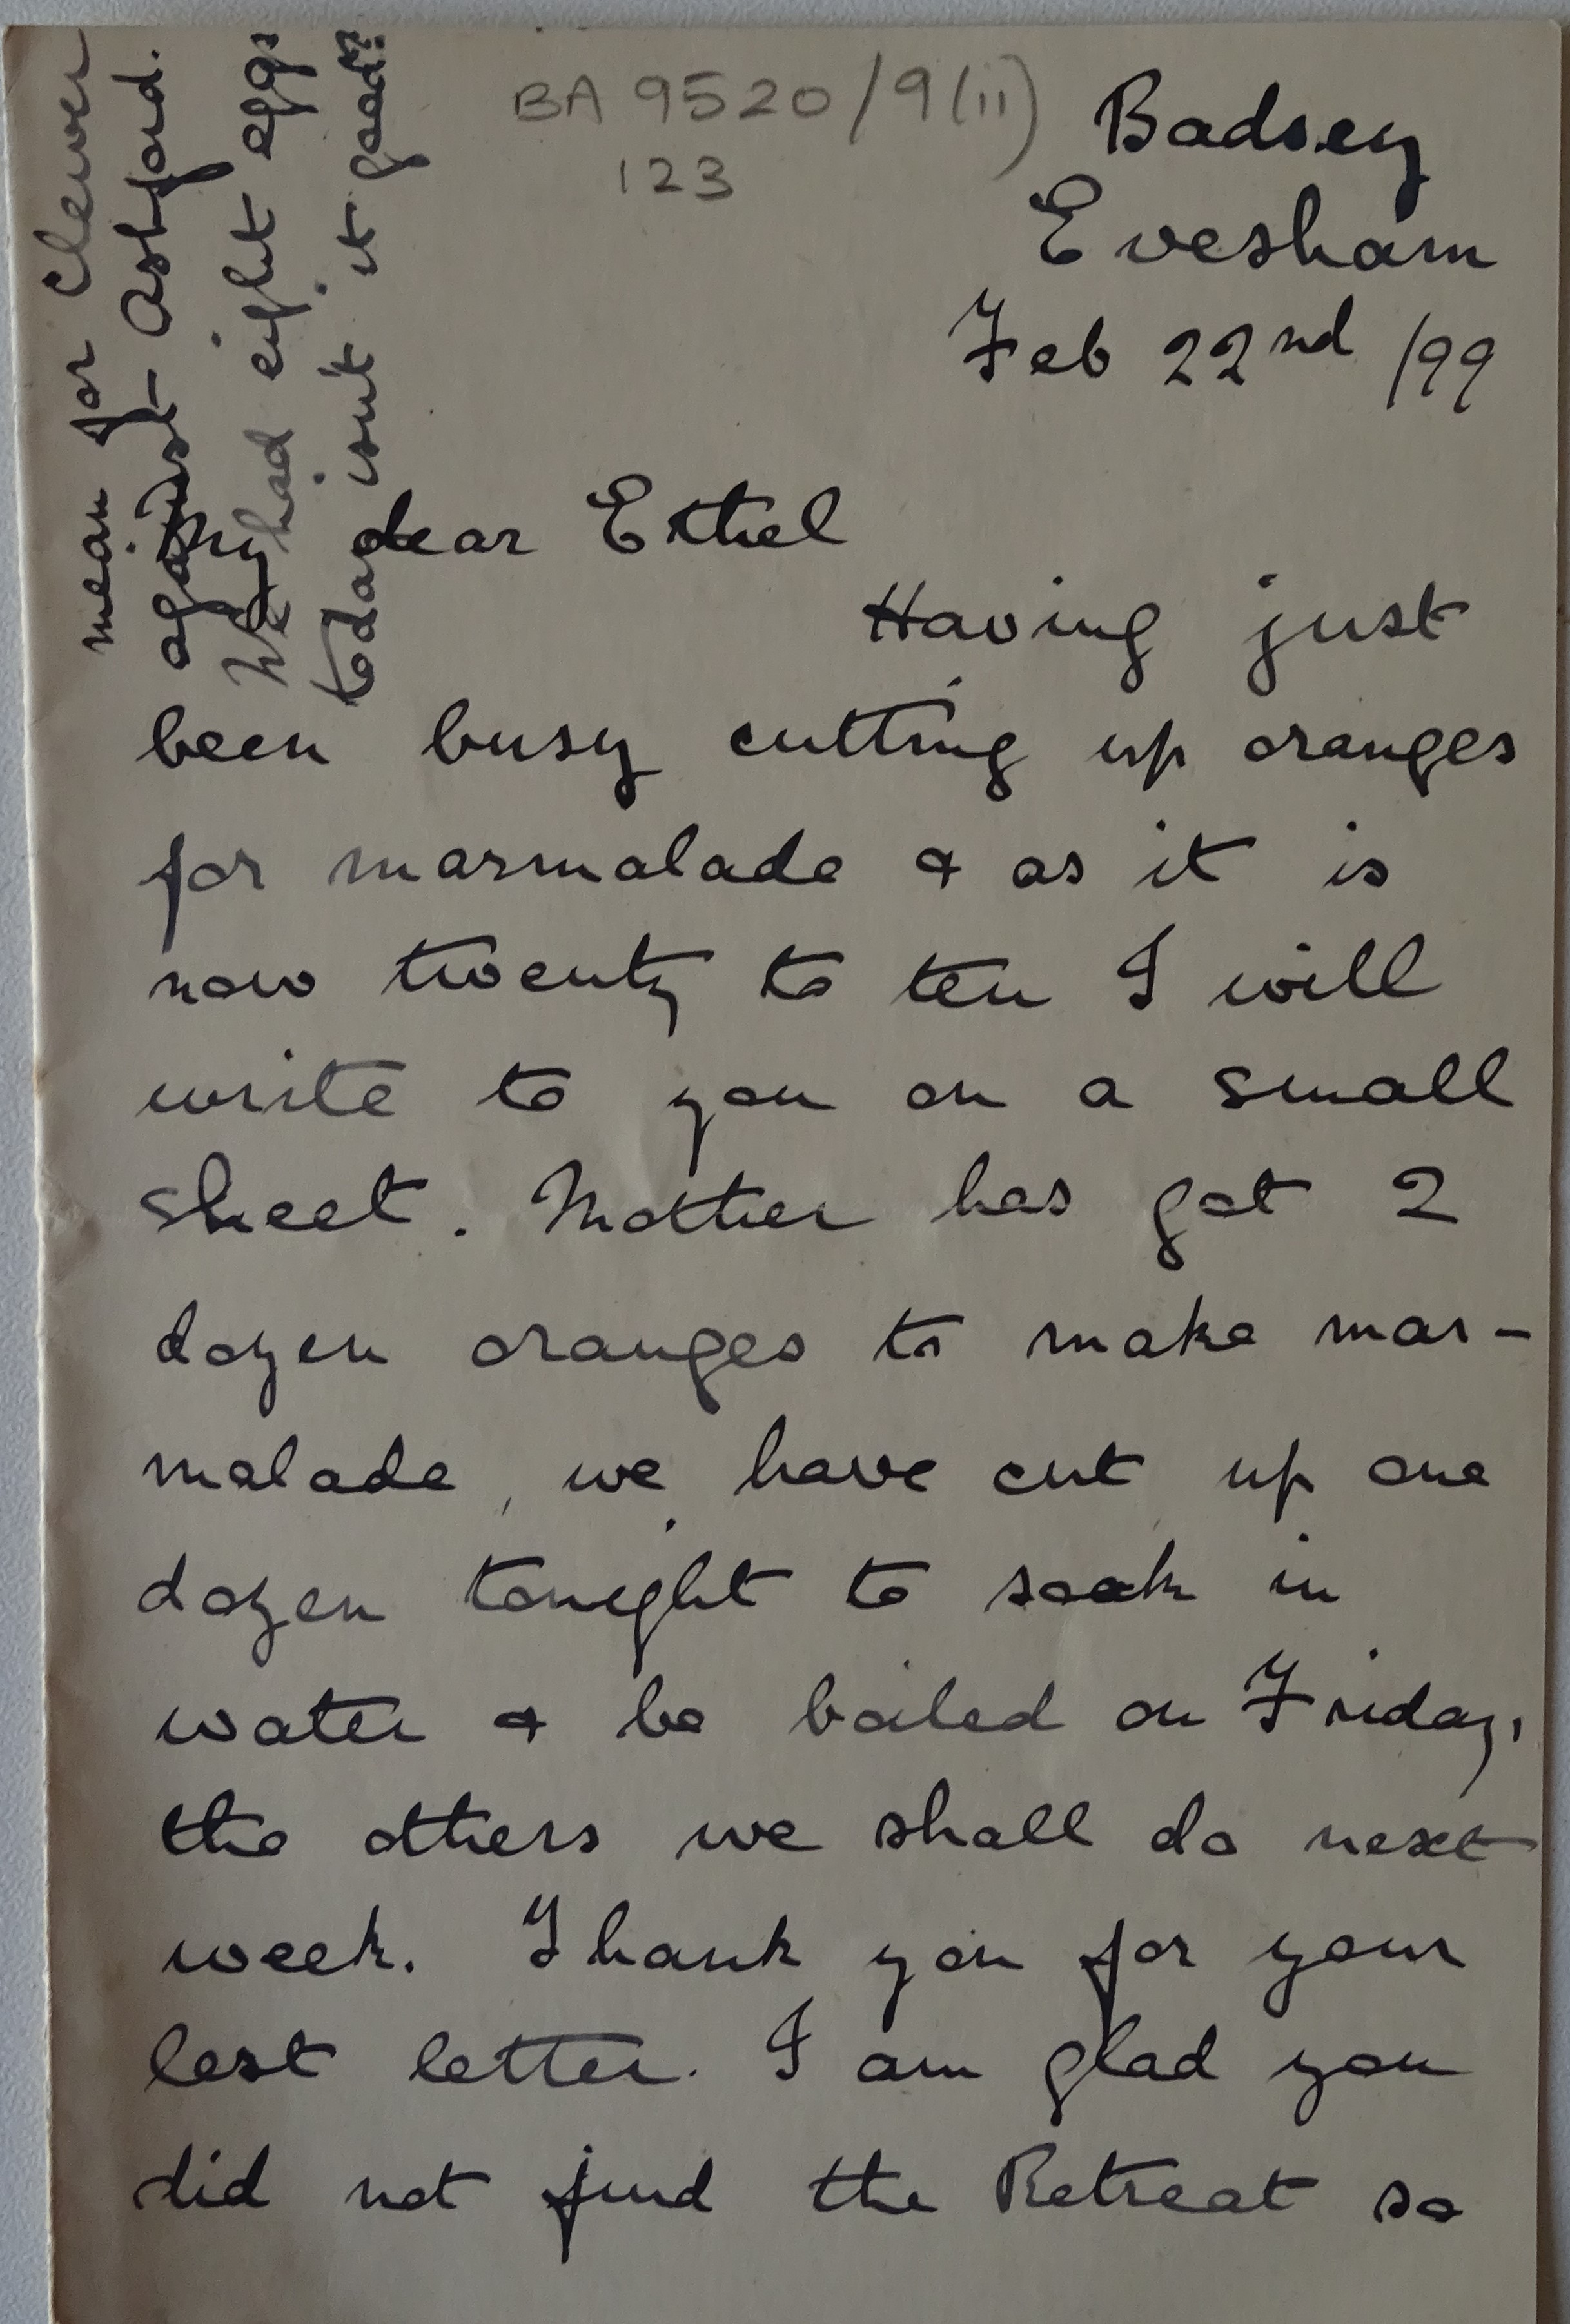 BA 9520/9(ii)
123
Badsey
Evesham
Feb 22nd /99
My dear Ethel
Having just
been busy cutting up oranges
for marmalade & as it is
now twenty to ten I will
write to you on a small
sheet. Mother has got 2
dozen oranges to make mar-
malade, we have cut up one
dozen tonight to soak in
water & be boiled on Friday,
the others we shall do next
week. Thank you for your
last letter. I am glad you
did not find the Retreat so
mean for Clewer
against Ashford.
We had eight eggs
today isn't it good?